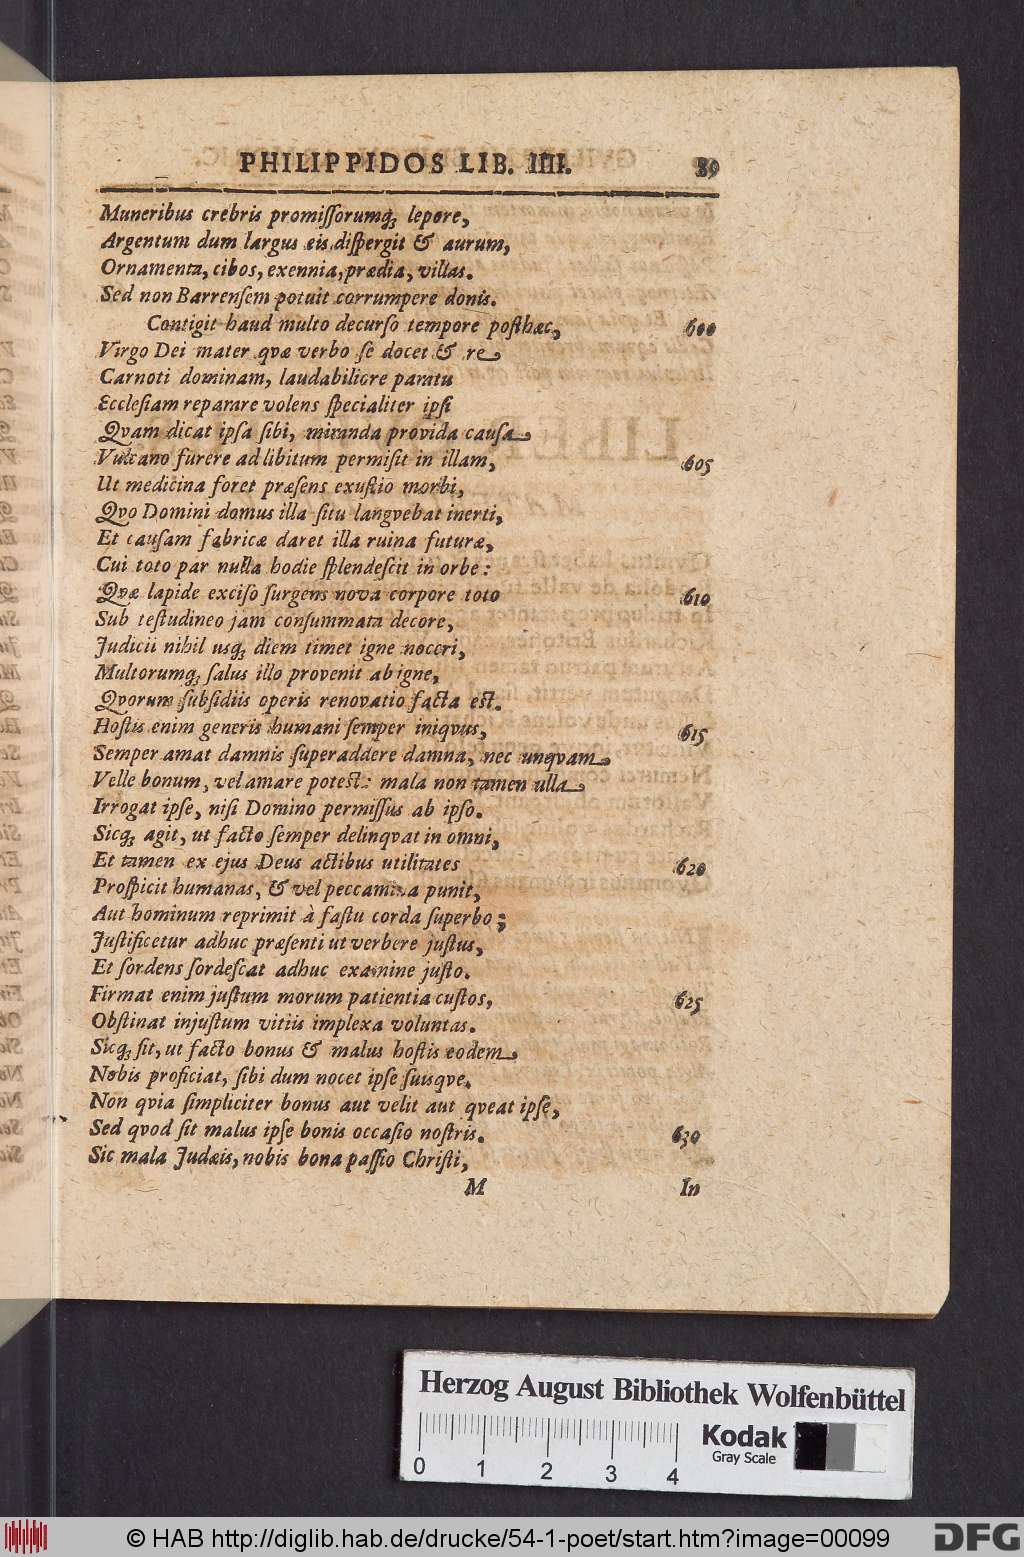 PHILIPPIDOS LIB. IIII. 89
Muneribus crebris promiſſorumq; lepore,
Argentum dum largus eis diſpergit & aurum,
Ornamenta, cibos, exennia, prædia, villas.
Sed non Barrenſem potuit corrumpere donis.
Contigit haud multo decurſo tempore poſthæc, 600
Virgo Dei mater qvæ verbo ſe docet & re
Carnoti dominam, laudabiliore paratu
Eccleſiam reparare volens ſpecialiter ipſi
Qvam dicat ipſa ſibi, miranda provida cauſa
Vulcano furere ad libitum permiſit in illam, 605
Ut medicina foret præſens exuſtio morbi,
Qvo Domini domus illa ſitu langvebat inerti,
Et cauſam fabricæ daret illa ruina futuræ,
Cui toto par nulla hodie ſplendeſcit in orbe:
Qvæ lapide exciſo ſurgens nova corpore toto 610
Sub teſtudineo jam conſummata decore,
Judicii nihil usq; diem timet igne noceri,
Multorumq; ſalus illo provenit ab igne,
Qvorum ſubſidiis operis renovatio facta est.
Hoſtis enim generis humani ſemper iniqvus, 615
Semper amat damnis ſuperaddere damna, nec unqvam
Velle bonum, vel amare potest: mala non tamen ulla
Irrogat ipſe, niſi Domino permiſſus ab ipſo.
Sicq; agit, ut facto ſemper delinqvat in omni,
Et tamen ex ejus Deus actibus utilitates 620
Proſpicit humanas, & vel peccamina punit,
Aut hominum reprimit à faſtu corda ſuperbo;
Juſtificetur adhuc præſenti ut verbere juſtus,
Et ſordens ſordeſcat adhuc examine juſto.
Firmat enim juſtum morum patientia cuſtos, 625
Obſtinat injuſtum vitiis implexa voluntas.
Sicq; fit, ut facto bonus & malus hoſtis eodem
Nobis proficiat, ſibi dum nocet ipſe ſuisqve.
Non qvia ſimpliciter bonus aut velit aut qveat ipſe,
Sed qvod ſit malus ipſe bonis occaſio noſtris. 630
Sic mala Judæis, nobis bona paſſio Chriſti,
M In
Herzog August Bibliothek Wolfenbüttel
0 1 2 3 4
Kodak
Gray Scale
© HAB http://diglib.hab.de/drucke/54-1-poet/start.htm?image=00099
DFG